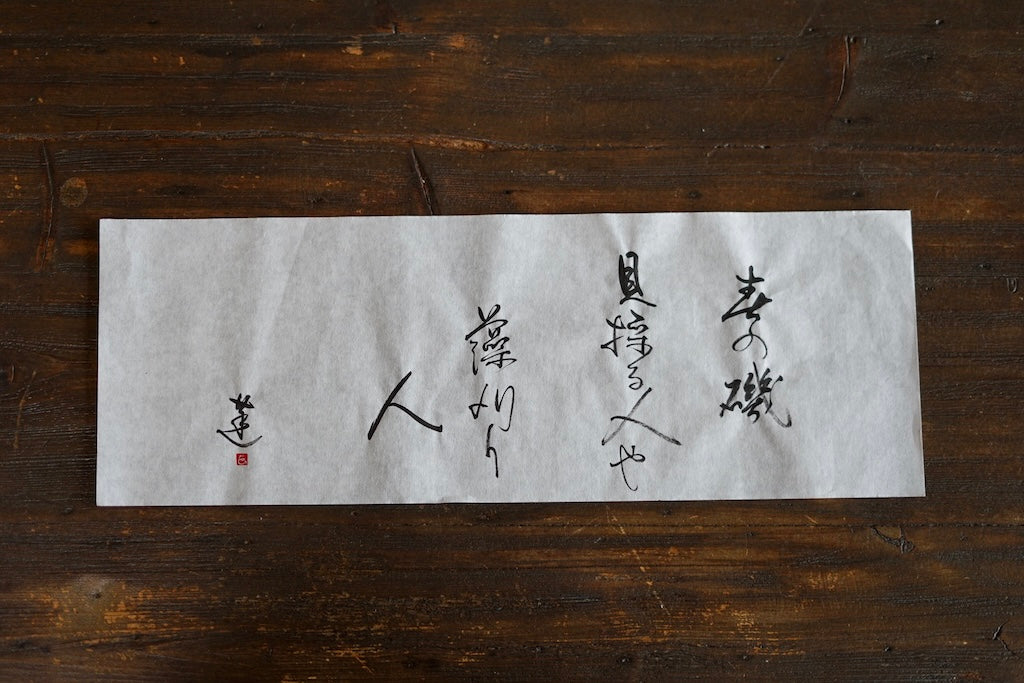 春の磯
貝採る人や
藻刈り
人
蓮